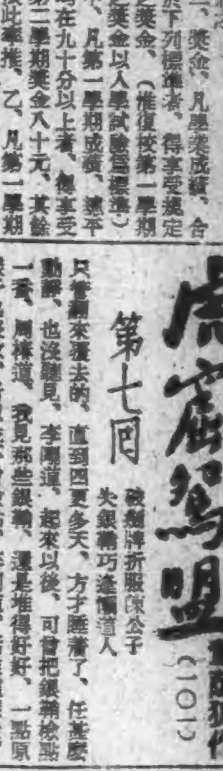 二、獎金、凡學業成績、合
於下列標準者、得享受規定
之獎金、（惟復校第一學期
獎金以入學試驗爲標準）
、凡第一學期成績、總平
均在九十分以上者、得享受
第二學期獎金八十元、其餘
按此類推、乙、凡第一學期
虎窟鴛盟
（一〇一）
第七回
破劍牌折服陳公子
失銀鞘巧逢
道人
只管翻來覆去的、直到四更多天、方才睡着了、任甚麼
動靜、也沒聽見、李剛道、起來以後、可曾把銀鞘檢點
一番、周棟道、我見那些銀鞘、還是堆得好好、一點原